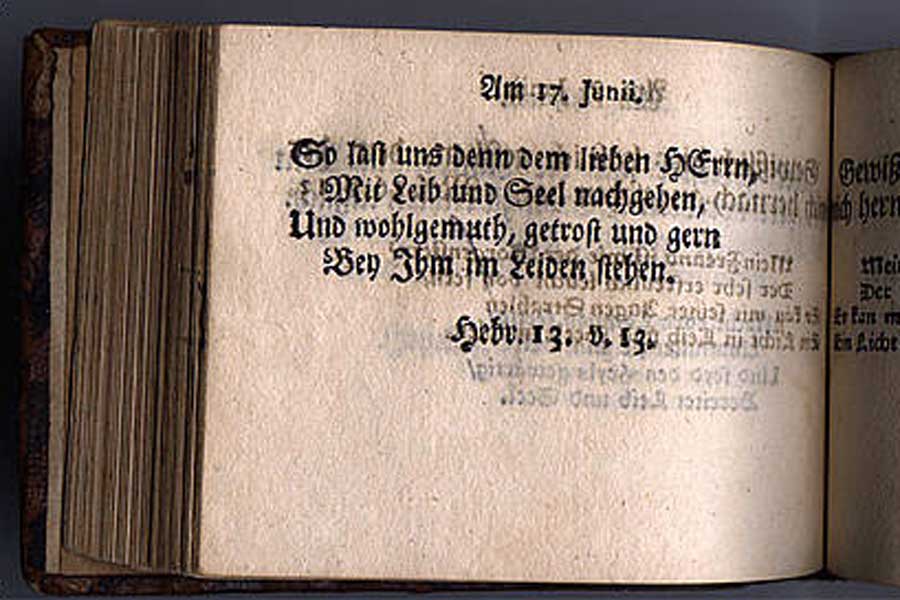 Am 17. Junii.
So laſt uns denn dem lieben HErrn,
Mit Leib und Seel nachgehen,
Und wohlgemuth, getroſt und gern
Bey Ihm im Leiden ſtehen.
Hebr. 13. v. 13.
Gewiß
hern
Mein
Der
Er kan
Ein Licht